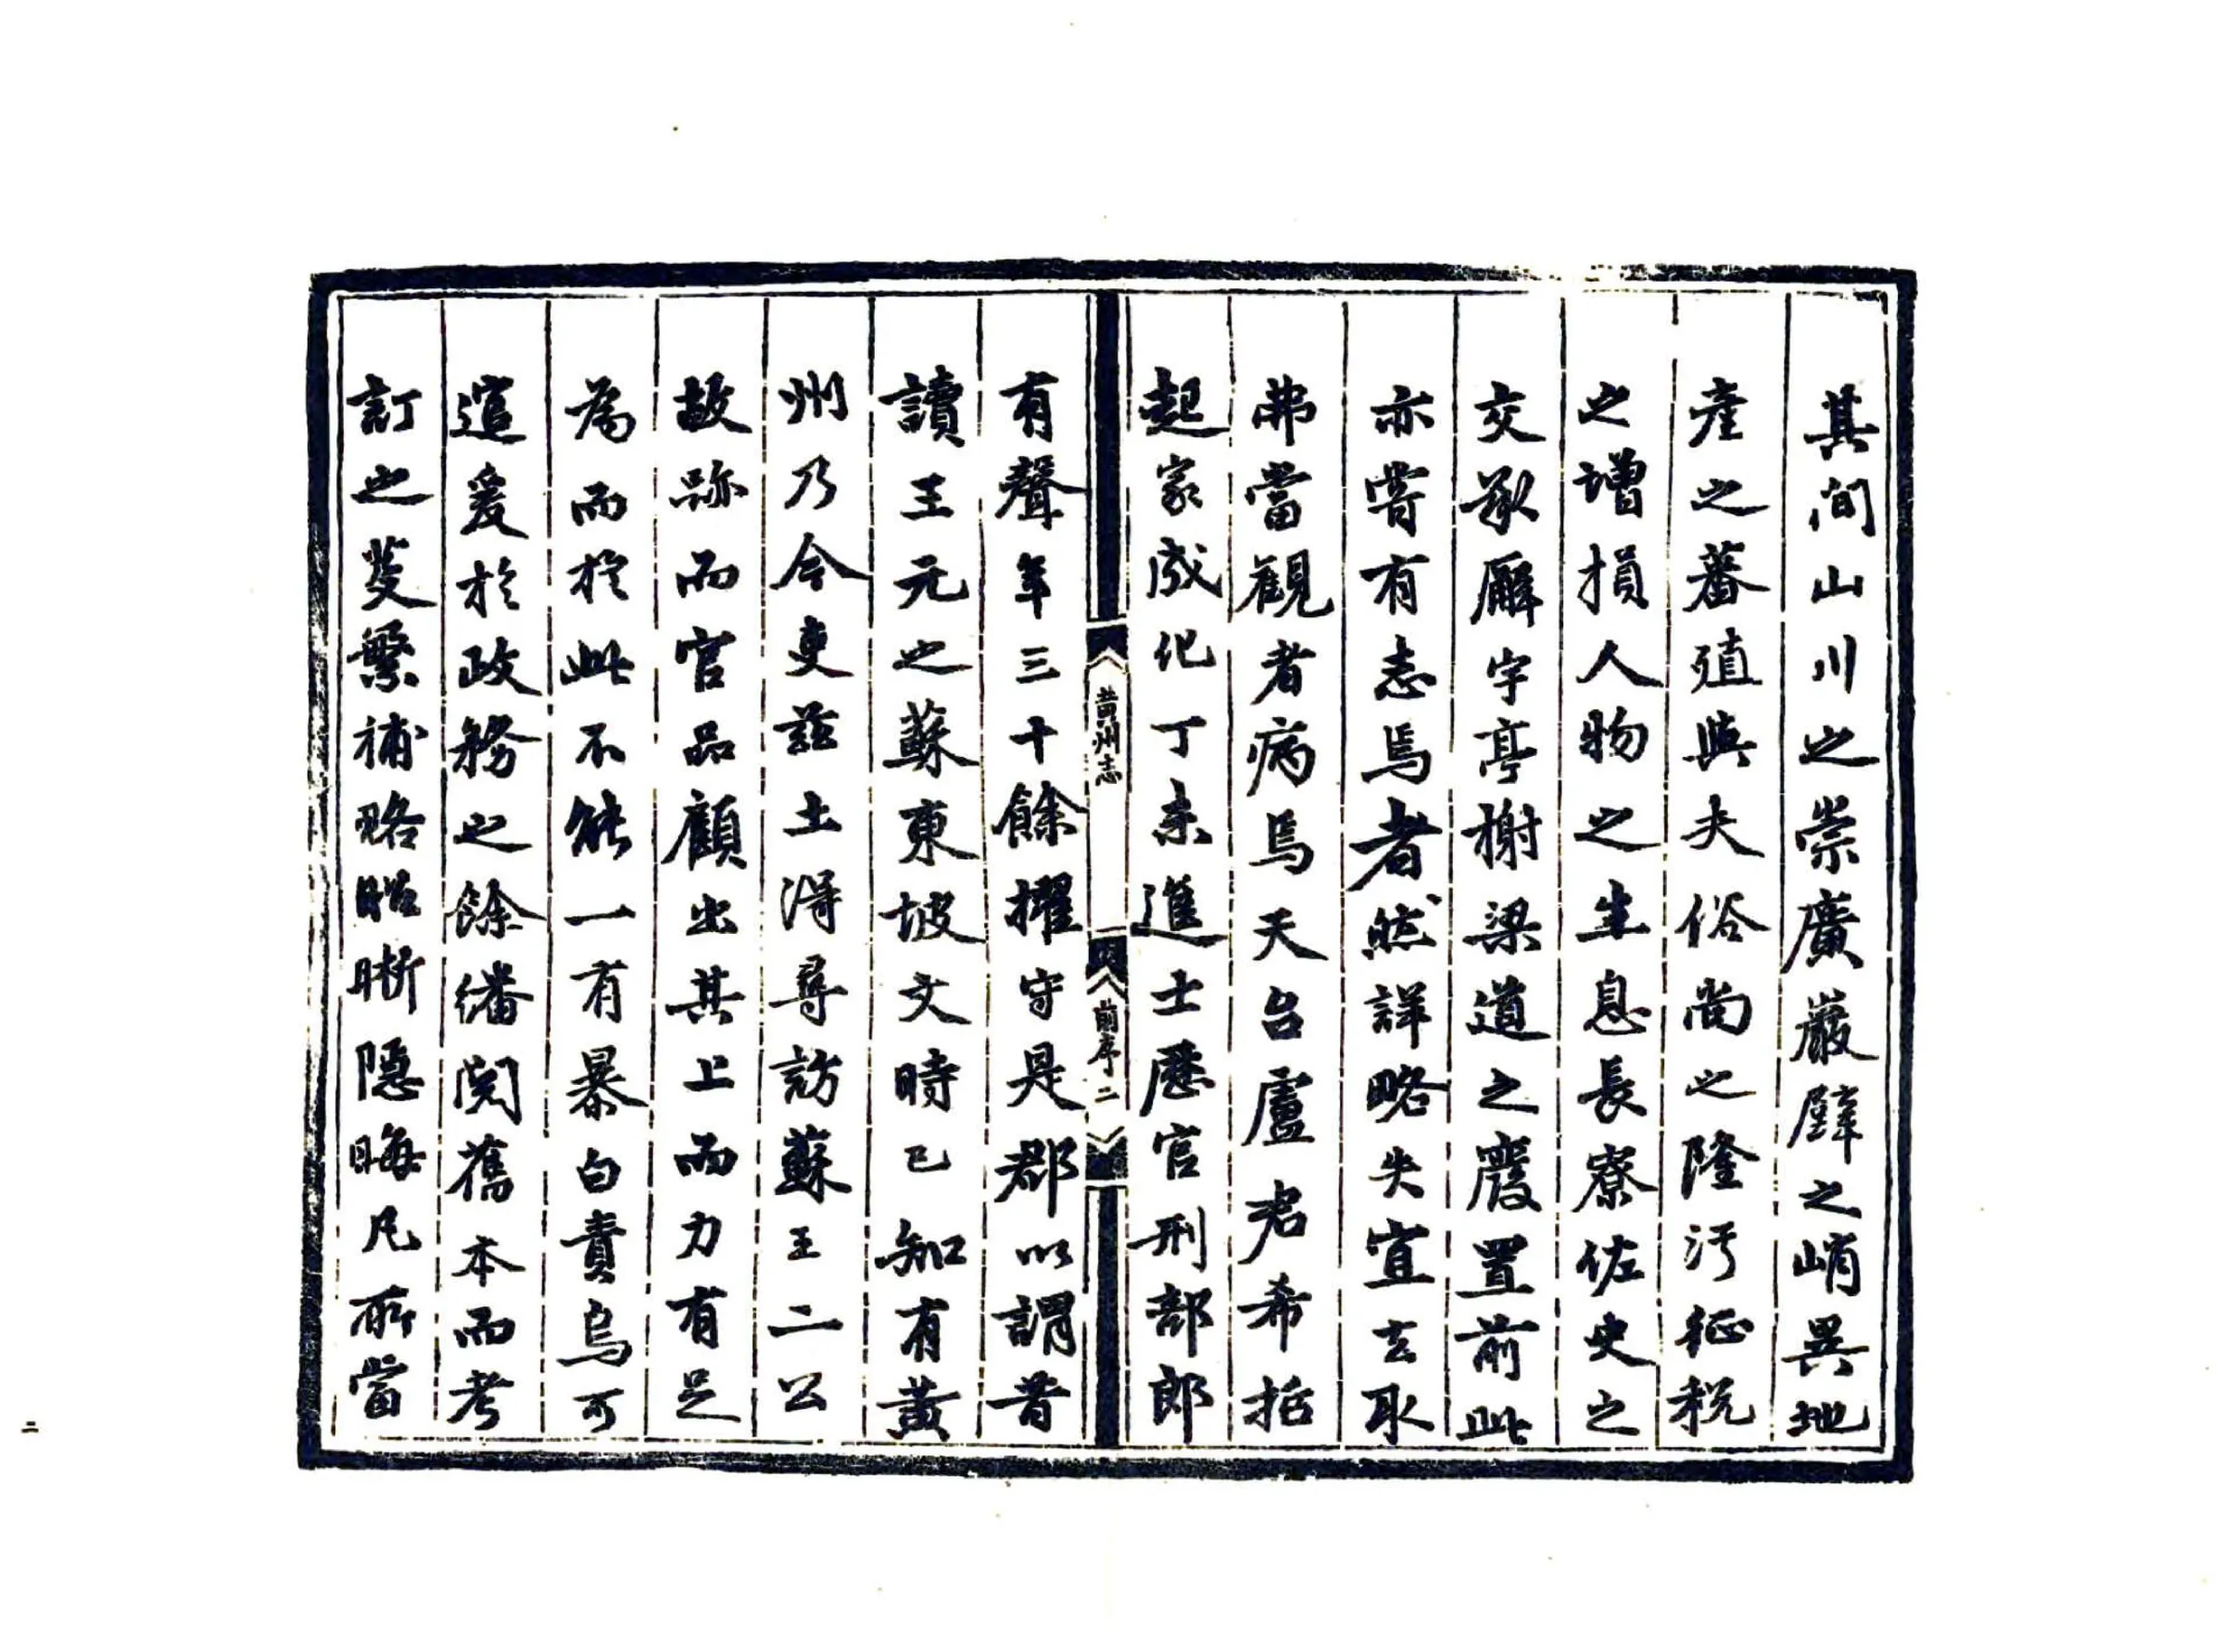 其间山川之崇廣巖壁之峭異地
產之蕃殖與夫俗尚之隆污征稅
之增損人物之生息長寮佐史之
交承廨宇亭榭梁道之廢置前此
亦嘗有志焉者然詳略失宜去取
弗當觀者病焉天台盧君希括
起家成化丁未進士歷官刑部郎
黄州志
前序二
有聲年三十餘擢守是郡以謂昔
讀王元之蘇東坡文時已知有黃
州乃今吏茲土得尋訪蘇王二公
故跡而官品顧出其上而力有足
為而於此不能一有暴白責烏可
逭爰於政務之餘繙閱舊本而考
訂之芟繁補略昭晰隱晦凡所當
二